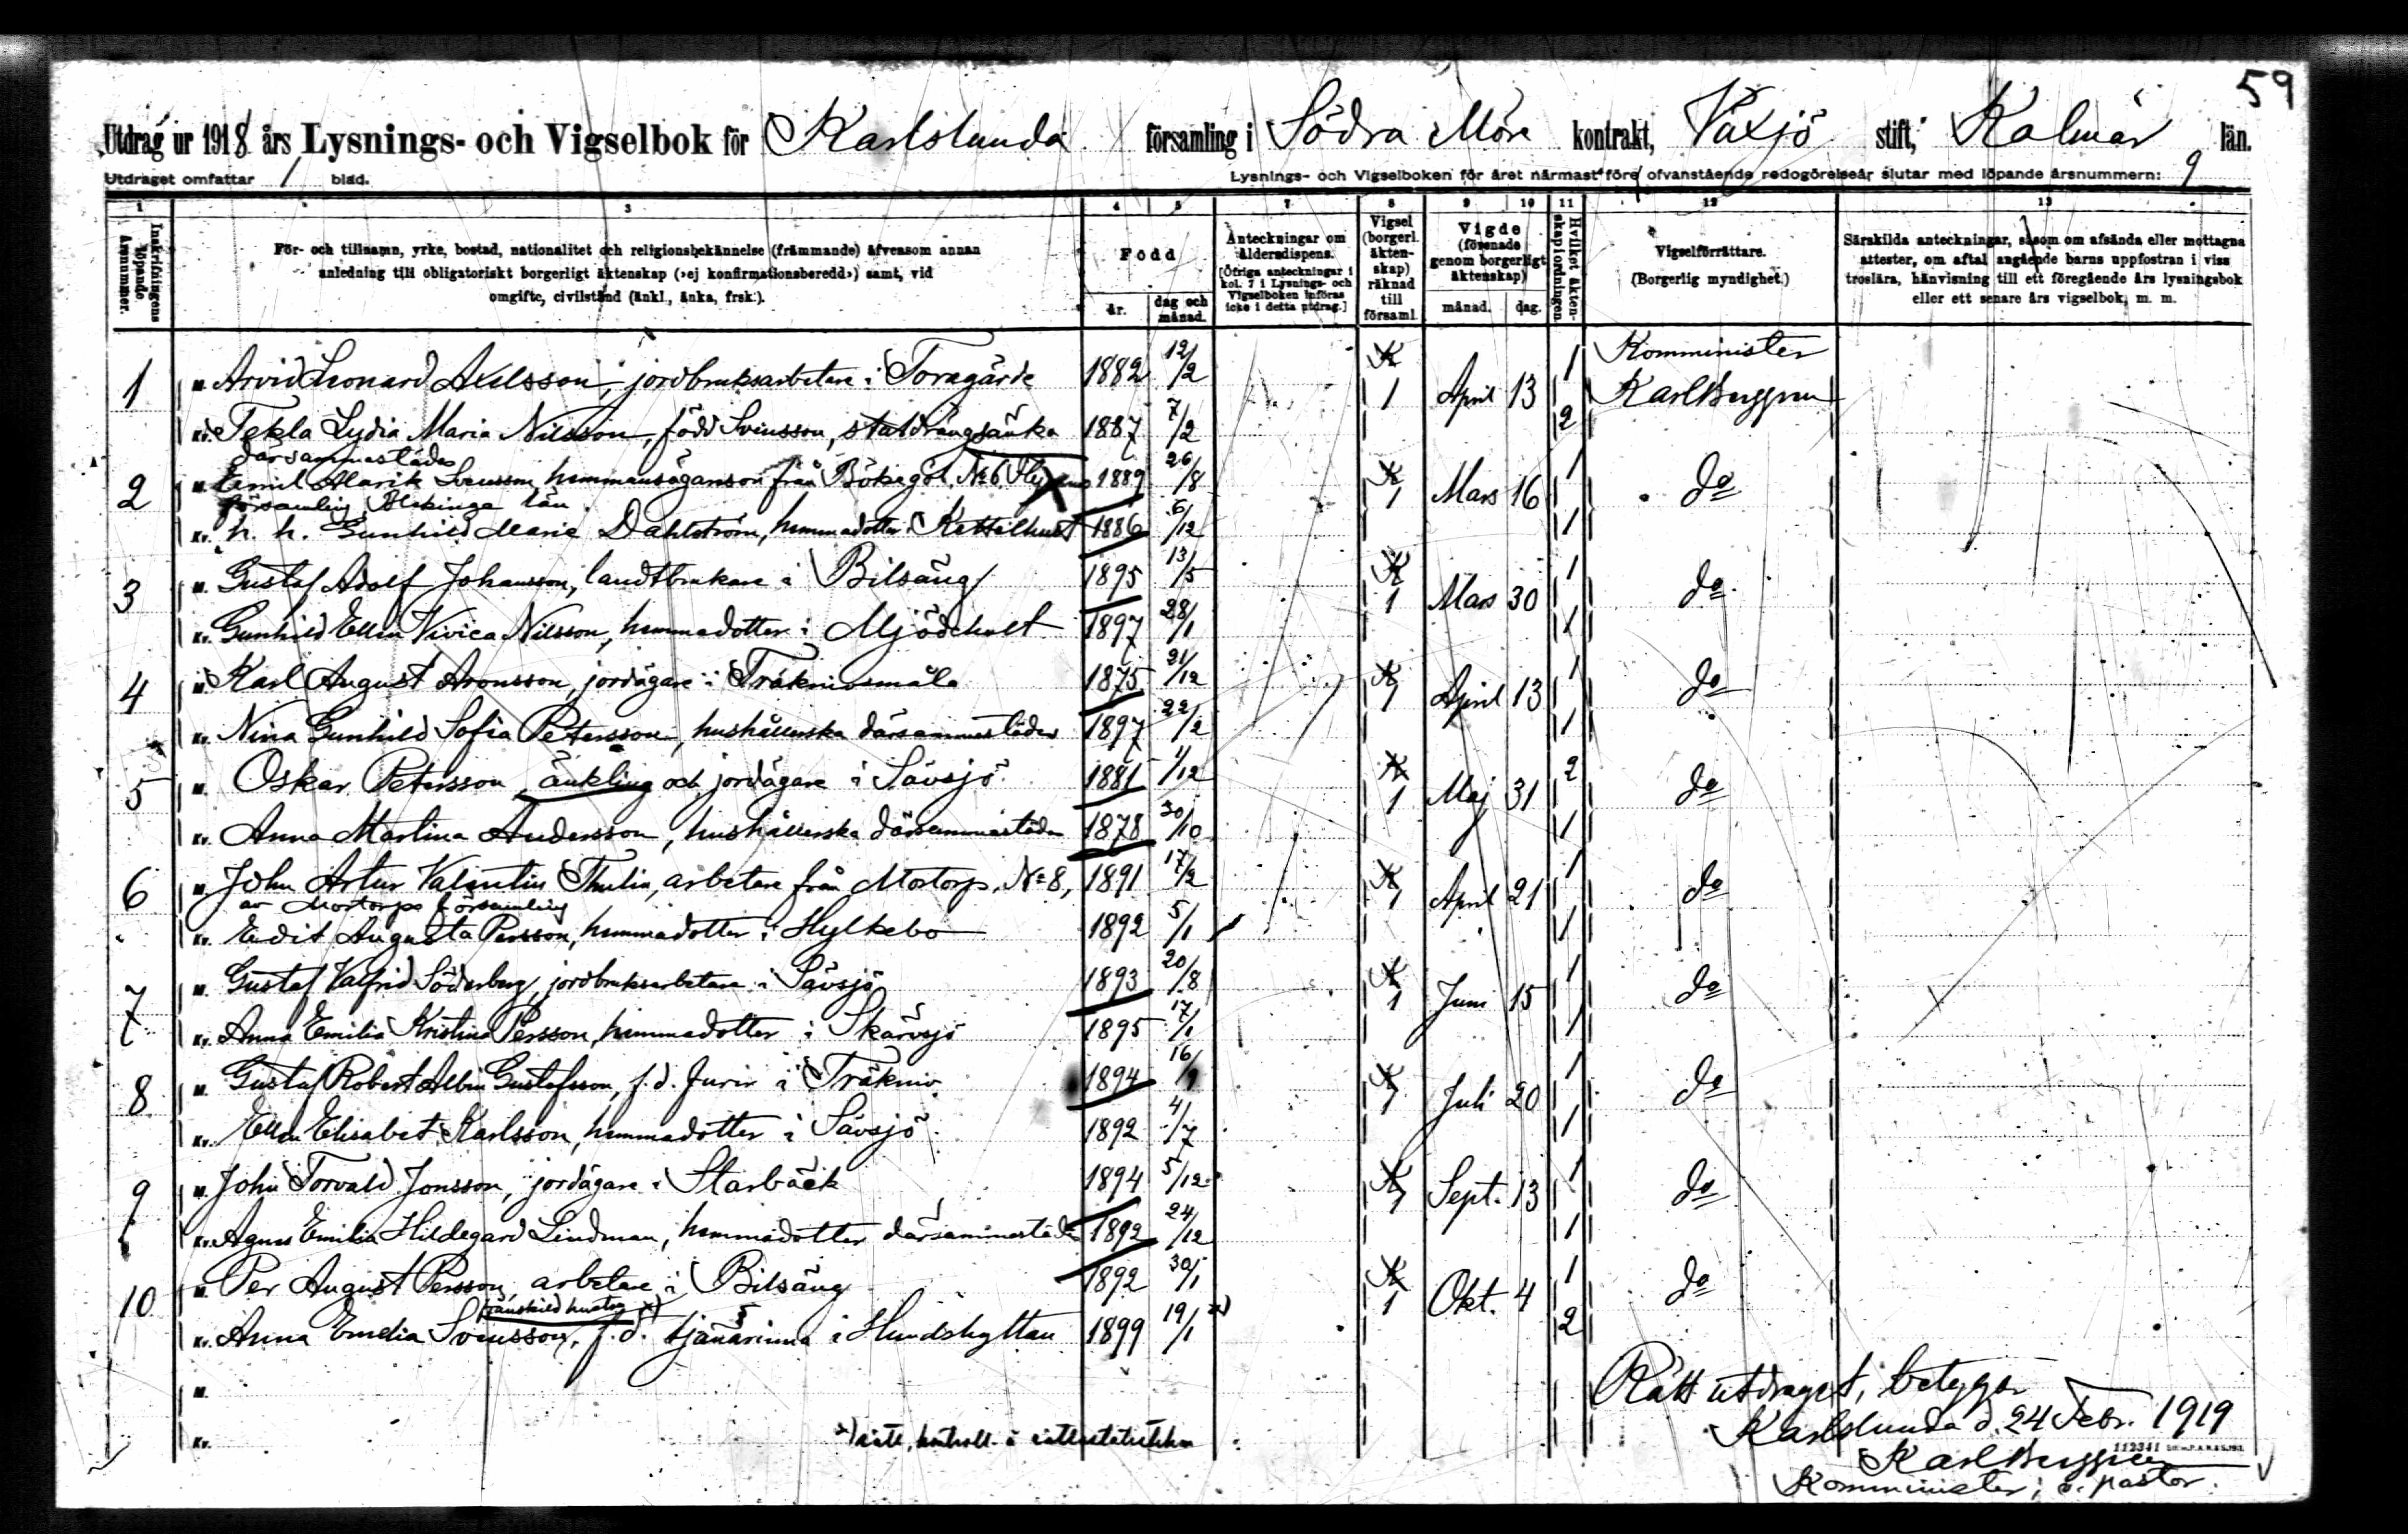 59
Utdrag ur 1918 års Lysnings- och Vigselbok för Karlslunda församling i Södra Möre kontrakt, Växjö stift, Kalmar län.
Utdraget omfattar 1 blad. Lysnings- och Vigselboken för året närmast före ofvanstående redogörelseår slutar med löpande årsnummern: 9
1 3 4 5 7 8 9 10 11 12 13
Inskrifningens löpande årsnummer.
För- och tillnamn, yrke, bostad, nationalitet och religionsbekännelse (främmande) äfvensom annan
anledning till obligatoriskt borgerligt äktenskap (»ej konfirmationsberedd») samt, vid
omgifte, civilstånd (änkl., änka, frsk.).
Född
år.
dag och månad.
Anteckningar om åldersdispens.
[Öfriga anteckningar i kol. 7 i Lysnings- och Vigselboken införas icke i detta utdrag.]
Vigsel (borgerl. äktenskap) räknad till församl.
Vigde (förenade genom borgerligt äktenskap)
månad. dag.
Hvilket äktenskap i ordningen
Vigselförrättare.
(Borgerlig myndighet.)
Särskilda anteckningar, såsom om afsända eller mottagna
attester, om aftal angående barns uppfostran i viss
troslära, hänvisning till ett föregående års lysningsbok
eller ett senare års vigselbok, m. m.
1 M. Arvid Leonard Axelsson, jordbruksarbetare i Toragärde 1882 12/2 K 1 April 13 1 Komminister Karl Berggren
Kv. Tekla Lydia Maria Nilsson, född Svensson, statdrängsänka 1887 7/2 2
därsammastädes
2 M. Emil Alarik Svensson, hemmansäganson från Bökegöl, No 6, 1889 26/8 K 1 Mars 16 1 do
församling, Blekinge län
Kv. h. h. Gunhild Marie Dahlström, hemmadotter i Kettilhult 1886 6/12 1
3 M. Gustaf Adolf Johansson, landtbrukare i Bilsäng 1895 13/5 K 1 Mars 30 1 do
Kv. Gunhild Ellen Vivica Nilsson, hemmadotter i Mjödehult 1897 28/1 1
4 M. Karl August Aronsson, jordägare i Träknivsmåla 1875 21/12 K 1 April 13 1 do
Kv. Nina Gunhild Sofia Petersson, hushållerska därsammastädes 1897 22/2 1
5 M. Oskar Petersson, änkling och jordägare i Sävsjö 1881 1/12 K 1 Maj 31 2 do
Kv. Anna Martina Andersson, hushållerska därsammastädes 1878 30/10 1
6 M. John Artur Valentin Thulin, arbetare från Mortorp, No 8, 1891 17/2 K 1 April 21 1 do
av Mortorps församling
Kv. Edit Augusta Persson, hemmadotter i Hylkebo 1892 5/1 1
7 M. Gustaf Valfrid Söderberg, jordbruksarbetare i Sävsjö 1893 20/8 K 1 Juni 15 1 do
Kv. Anna Emilia Kristina Persson, hemmadotter i Skärvsjö 1895 17/1 1
8 M. Gustaf Robert Albin Gustafsson, f. d. furir i Träkniv 1894 16/9 K 1 Juli 20 1 do
Kv. Ellen Elisabet Karlsson, hemmadotter i Sävsjö 1892 4/7 1
9 M. John Torvald Jonsson, jordägare i Starbäck 1894 5/12 K 1 Sept. 13 1 do
Kv. Agnes Emilia Hildegard Lindman, hemmadotter därsammastädes 1892 24/12 1
10 M. Per August Persson, arbetare i Bilsäng 1892 30/1 K 1 Okt. 4 1 do
(frånskild hustru x)
Kv. Anna Emelia Svensson, f. d. tjänarinna i Hundshyttan 1899 19/1 x) 2
M.
Kv.
Rätt utdraget, betygar
Karlslunda d. 24 Febr. 1919
Karl Berggren
Komminister, v. pastor.
112341